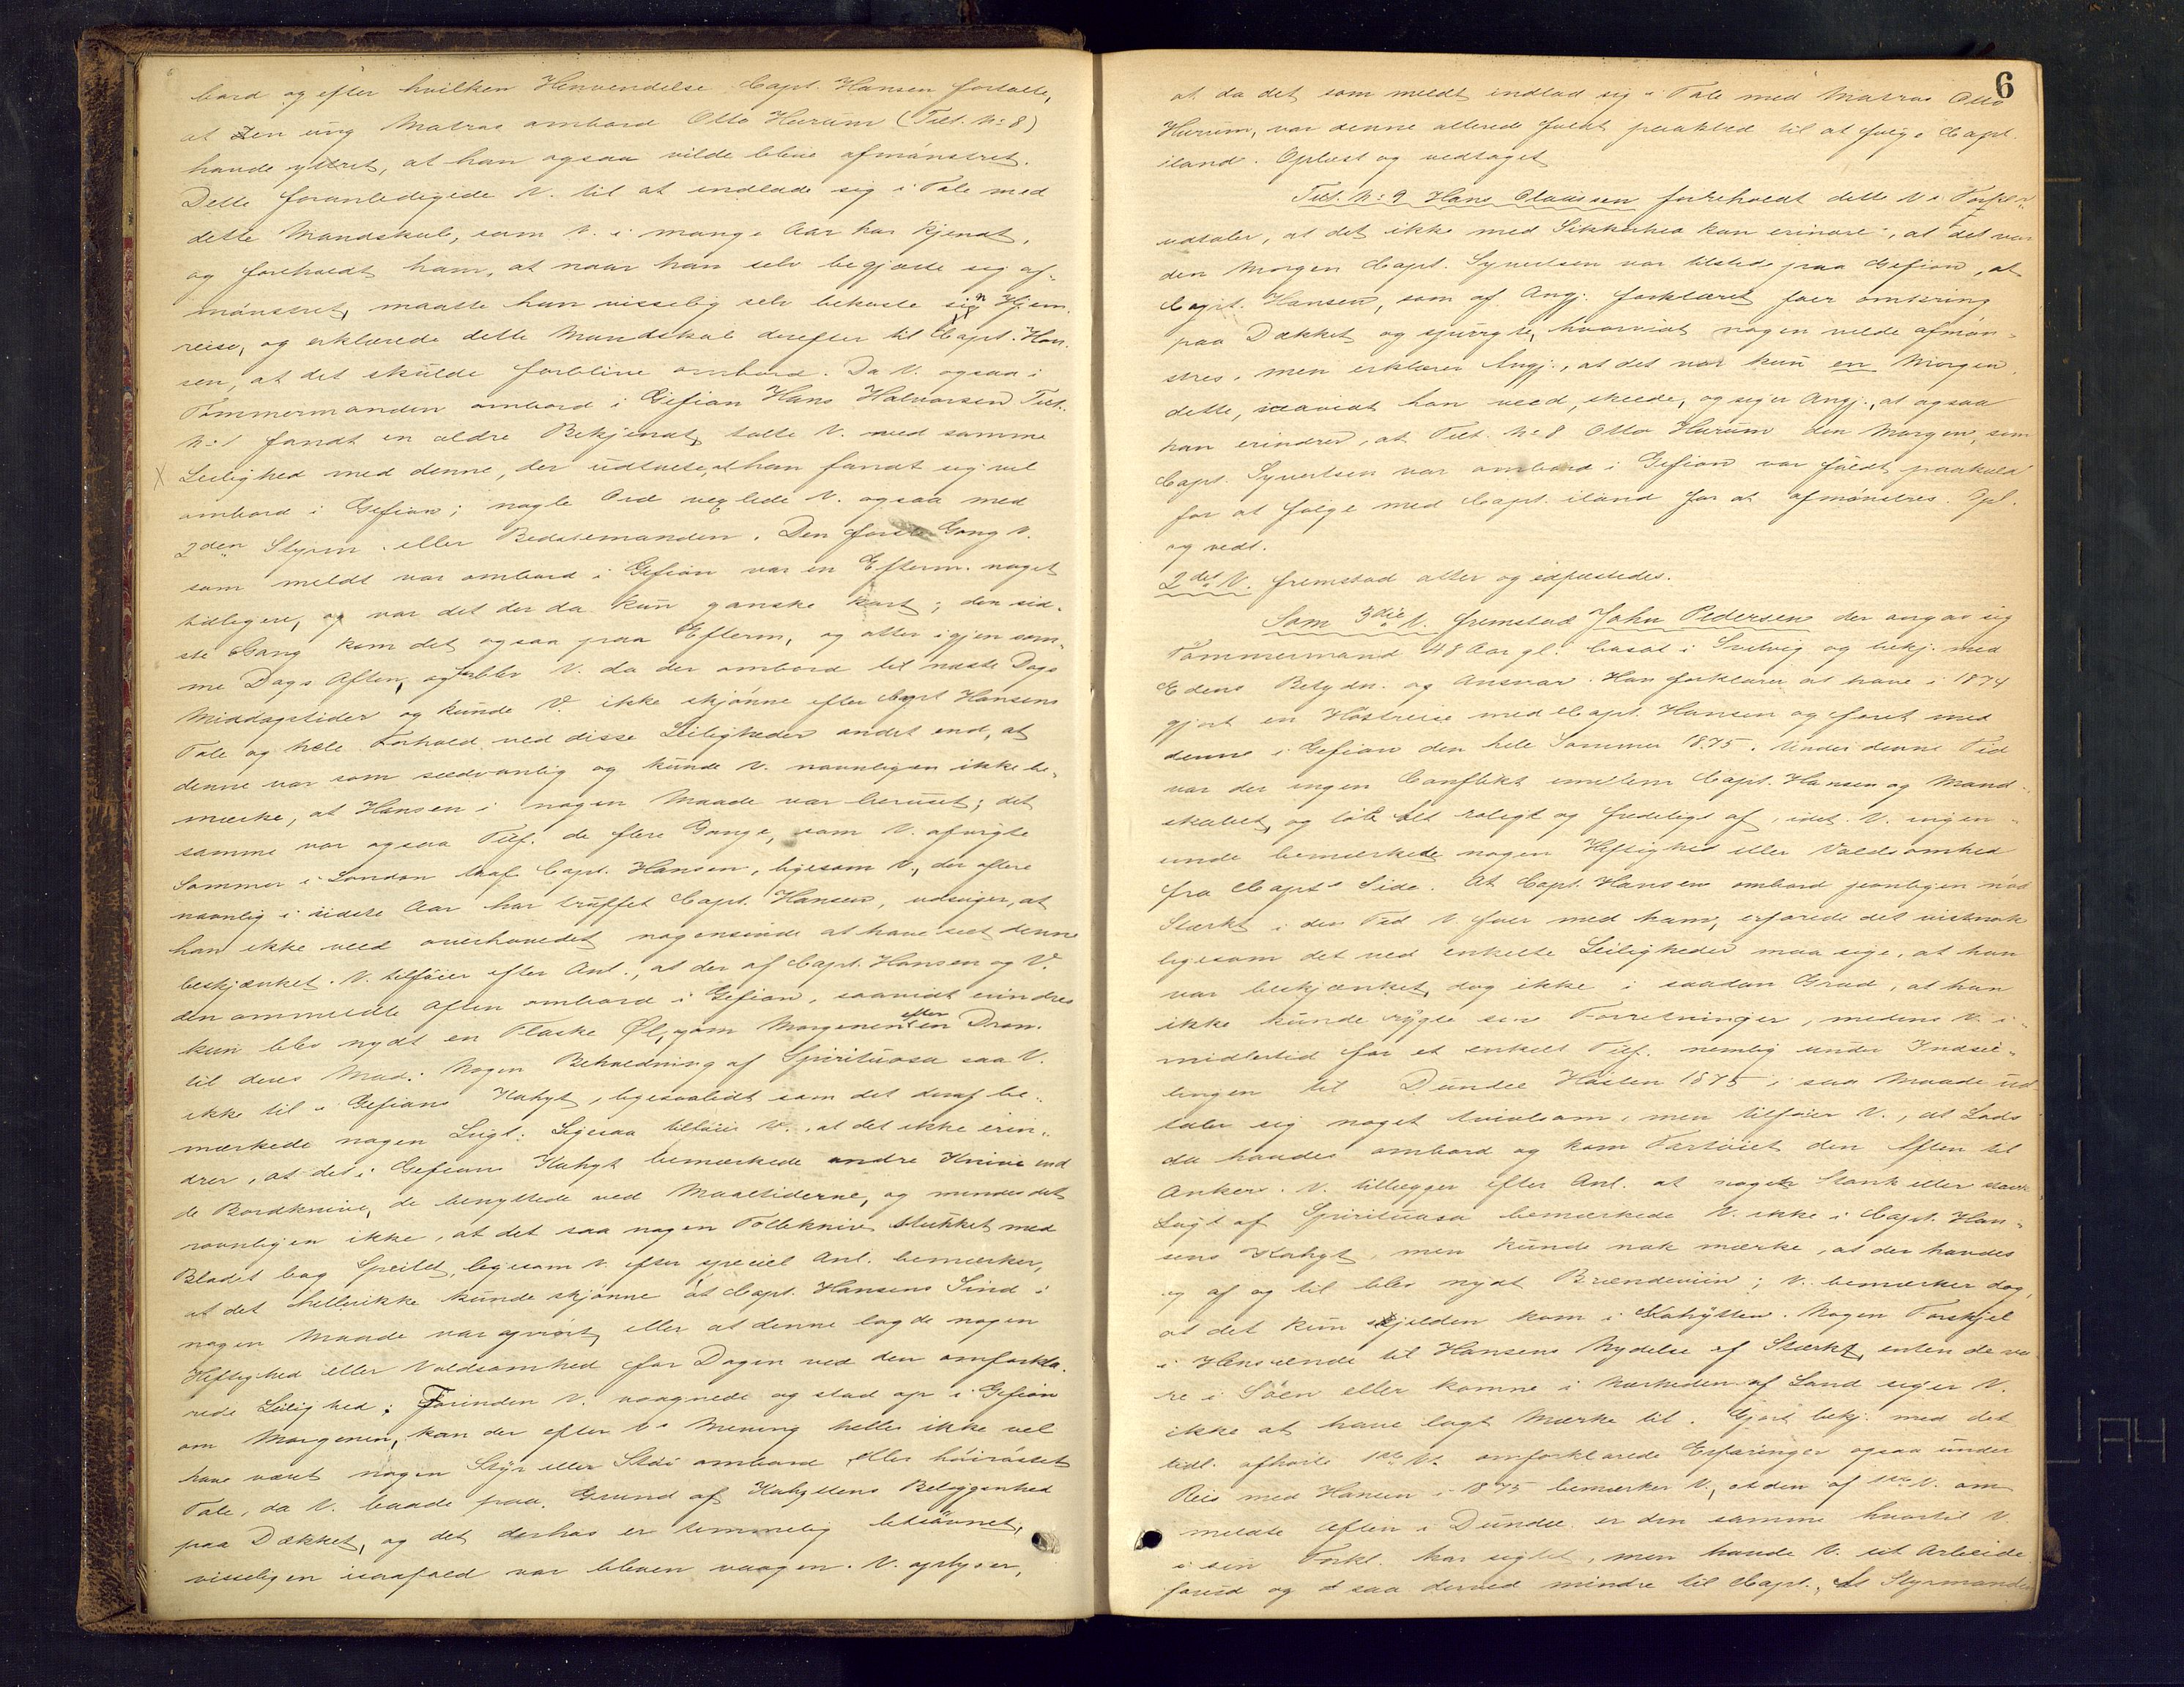 bord og efter hvilken Henvendelse Capt. Hansen fortalte,
at en ung Matros ombord Otto Hurum (Tilt. No 8)
havde yttret, at han ogsaa vilde blive afmønstret.
Dette foranledigede V. til at indlade sig i Tale med
dette Mandskab, som V. i mange Aar har kjendt,
og foreholdt ham, at naar han selv begjærte sig af-
mønstret, maatte han visselig selv bekoste sin Hjem-
reise, og erklærede dette Mandskab derefter til Capt. Han-
sen, at det skulde forblive ombord. Da V. ogsaa i
Tømmermanden ombord i Gefion Hans Halvorsen Tilt.
No 1 fandt en ældre Bekjendt, talte V. ved samme
Leilighed med denne, der udtalte, at han fandt sig vel
ombord i Gefion; nogle Ord vexlede V. ogsaa med
2den Styrm. eller Bedstemanden. Den første Gang V.
som meldt var ombord i Gefion var en Efterm. noget
tidligere, og var det der da kun ganske kort; den sid-
ste Gang kom det ogsaa paa Efterm., og atter igjen sam-
me Dags Aften, og blev V. da der ombord til næste Dags
Middagstider og kunde V. ikke skjønne efter Capt Hansens
Tale og hele Forhold ved disse Leiligheder andet end, at
denne var som sædvanlig og kunde V. navnligen ikke be-
mærke, at Hansen i nogen Maade var beruset; det
samme var ogsaa Tilf. de flere Gange, som V. afvigte
Sommer i London traf Capt. Hansen, ligesom V., der oftere
navnlig i sidste Aar har truffet Capt. Hansen, udsiger, at
han ikke veed overhovedet nogensinde at have seet denne
beskjænket. V. tilføier efter Anl., at der af Capt. Hansen og V.
den ommeldte Aften ombord i Gefion, saavidt erindres
kun blev nydt en Flaske Øl, som Morgenen efter en Dram
til deres Mad. Nogen Beholdning af Spirituosa saa V.
ikke til i Gefions Kahyt, ligesaalidt som det deraf be-
mærkede nogen Lugt. Ligesaa tilføier V., at det ikke erin-
drer, at det i Gefions Kahyt bemærkede andre Knive end
de Bordknive, de benyttede ved Maaltiderne, og mindes det
navnligen ikke, at det saa nogen Tolleknive stukket med
Bladet bag Speilet, ligesom V. efter speciel Anl. bemærker,
at det hellerikke kunde skjønne at Capt. Hansens Sind i
nogen Maade var oprørt, eller at denne lagde nogen
Heftighed eller Voldsomhed for Dagen ved den omforkla-
rede Leilighed. Forinden V. vaagnede og stod op i Gefion
om Morgenen, kan der efter Vs Mening heller ikke vel
have været nogen Styr eller Støi ombord eller høirøstet
Tale, da V. baade paa Grund af Kahyttens Beliggenhed
paa Dækket, og det derhos er temmelig letsøvnet,
visseligen isaafald var bleven vaagen. V. oplyser,
6
at da det som meldt indlod sig i Tale med Matros Otto
Hurum, var denne allerede fuldt paaklæd til at følge Capt.
iland. Oplæst og vedtaget
Tilt. No 9 Hans Claussen foreholdt dette Vs Forkl.
udtaler, at det ikke med Sikkerhed kan erindre, at det var
den Morgen Capt. Syvertsen var tilstede paa Gefion, at
Capt. Hansen, som af Angj. forklaret foer omkring
paa Dækket og spurgte, hvorvidt nogen vilde afmøn-
stres, men erklærer Angj., at det var kun en Morgen
dette, saavidt han veed, skeede, og siger Angj., at ogsaa
han erindrer, at Tilt. No 8 Otto Hurum den Morgen, som
Capt. Syvertsen var ombord i Gefion var fuldt paaklæd
for at følge med Capt. iland for at afmønstres. Opl.
og vedt.
2det V. fremstod atter og edfæstedes.
Som 3die V. fremstod John Pedersen der angav sig
Tømmermand 48 Aar gl. bosat i Svelvig og bekj. med
Edens Betydn. og Ansvar. Han forklarer at have i 1874
gjort en Høstreise med Capt. Hansen og faret med
denne i Gefion den hele Sommer 1875. Under denne Tid
var der ingen Conflikt imellem Capt. Hansen og Mand-
skabet, og løb alt roligt og fredeligt af, idet V. ingen-
sinde bemærkede nogen Heftighed eller Voldsomhed
fra Capts Side. At Capt. Hansen ombord jevnligen nød
Stærkt i den Tid V. foer med ham, erfarede det vistnok
ligesom det ved enkelte Leiligheder maa sige, at han
var beskjænket, dog ikke i saadan Grad, at han
ikke kunde rygte sine Forretninger, medens V. i-
midlertid for et enkelt Tilf. nemlig under Indsei-
lingen til Dundee Høsten 1875 i saa Maade ud
taler sig noget tvivlsom, men tilføier V., at Lods
da havdes ombord og kom Fartøiet den Aften til
Ankers. V. tillægger efter Anl. at nogen Stank eller stærk
Lugt af Spirituosa bemærkede V. ikke i Capt. Han-
sens Kahyt, men kunde nok mærke, at der havdes
og af og til blev nydt Brændeviin; V. bemærker dog,
at det kun sjelden kom i Kahytten. Nogen Forskjel
i Henseende til Hansens Nydelse af Stærkt, enten de va-
re i Søen eller komne i Nærheden af Land siger V.
ikke at have lagt Mærke til. Gjort bekj. med det
tidl. afhørte 1ste Vs omforklarede Erfaringer ogsaa under
Reis med Hansen i 1875 bemærker V., at den af 1ste V. om
meldte Aften i Dundee er den samme hvortil V.
i sin Forkl. har sigtet, men havde V. sit Arbeide
forud og saa derved mindre til Capt. At Styrmanden